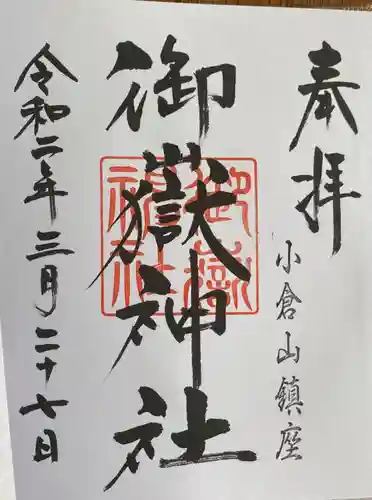 奉拝
小倉山鎮座
御嶽神社
御嶽神社
令和二年三月二十七日